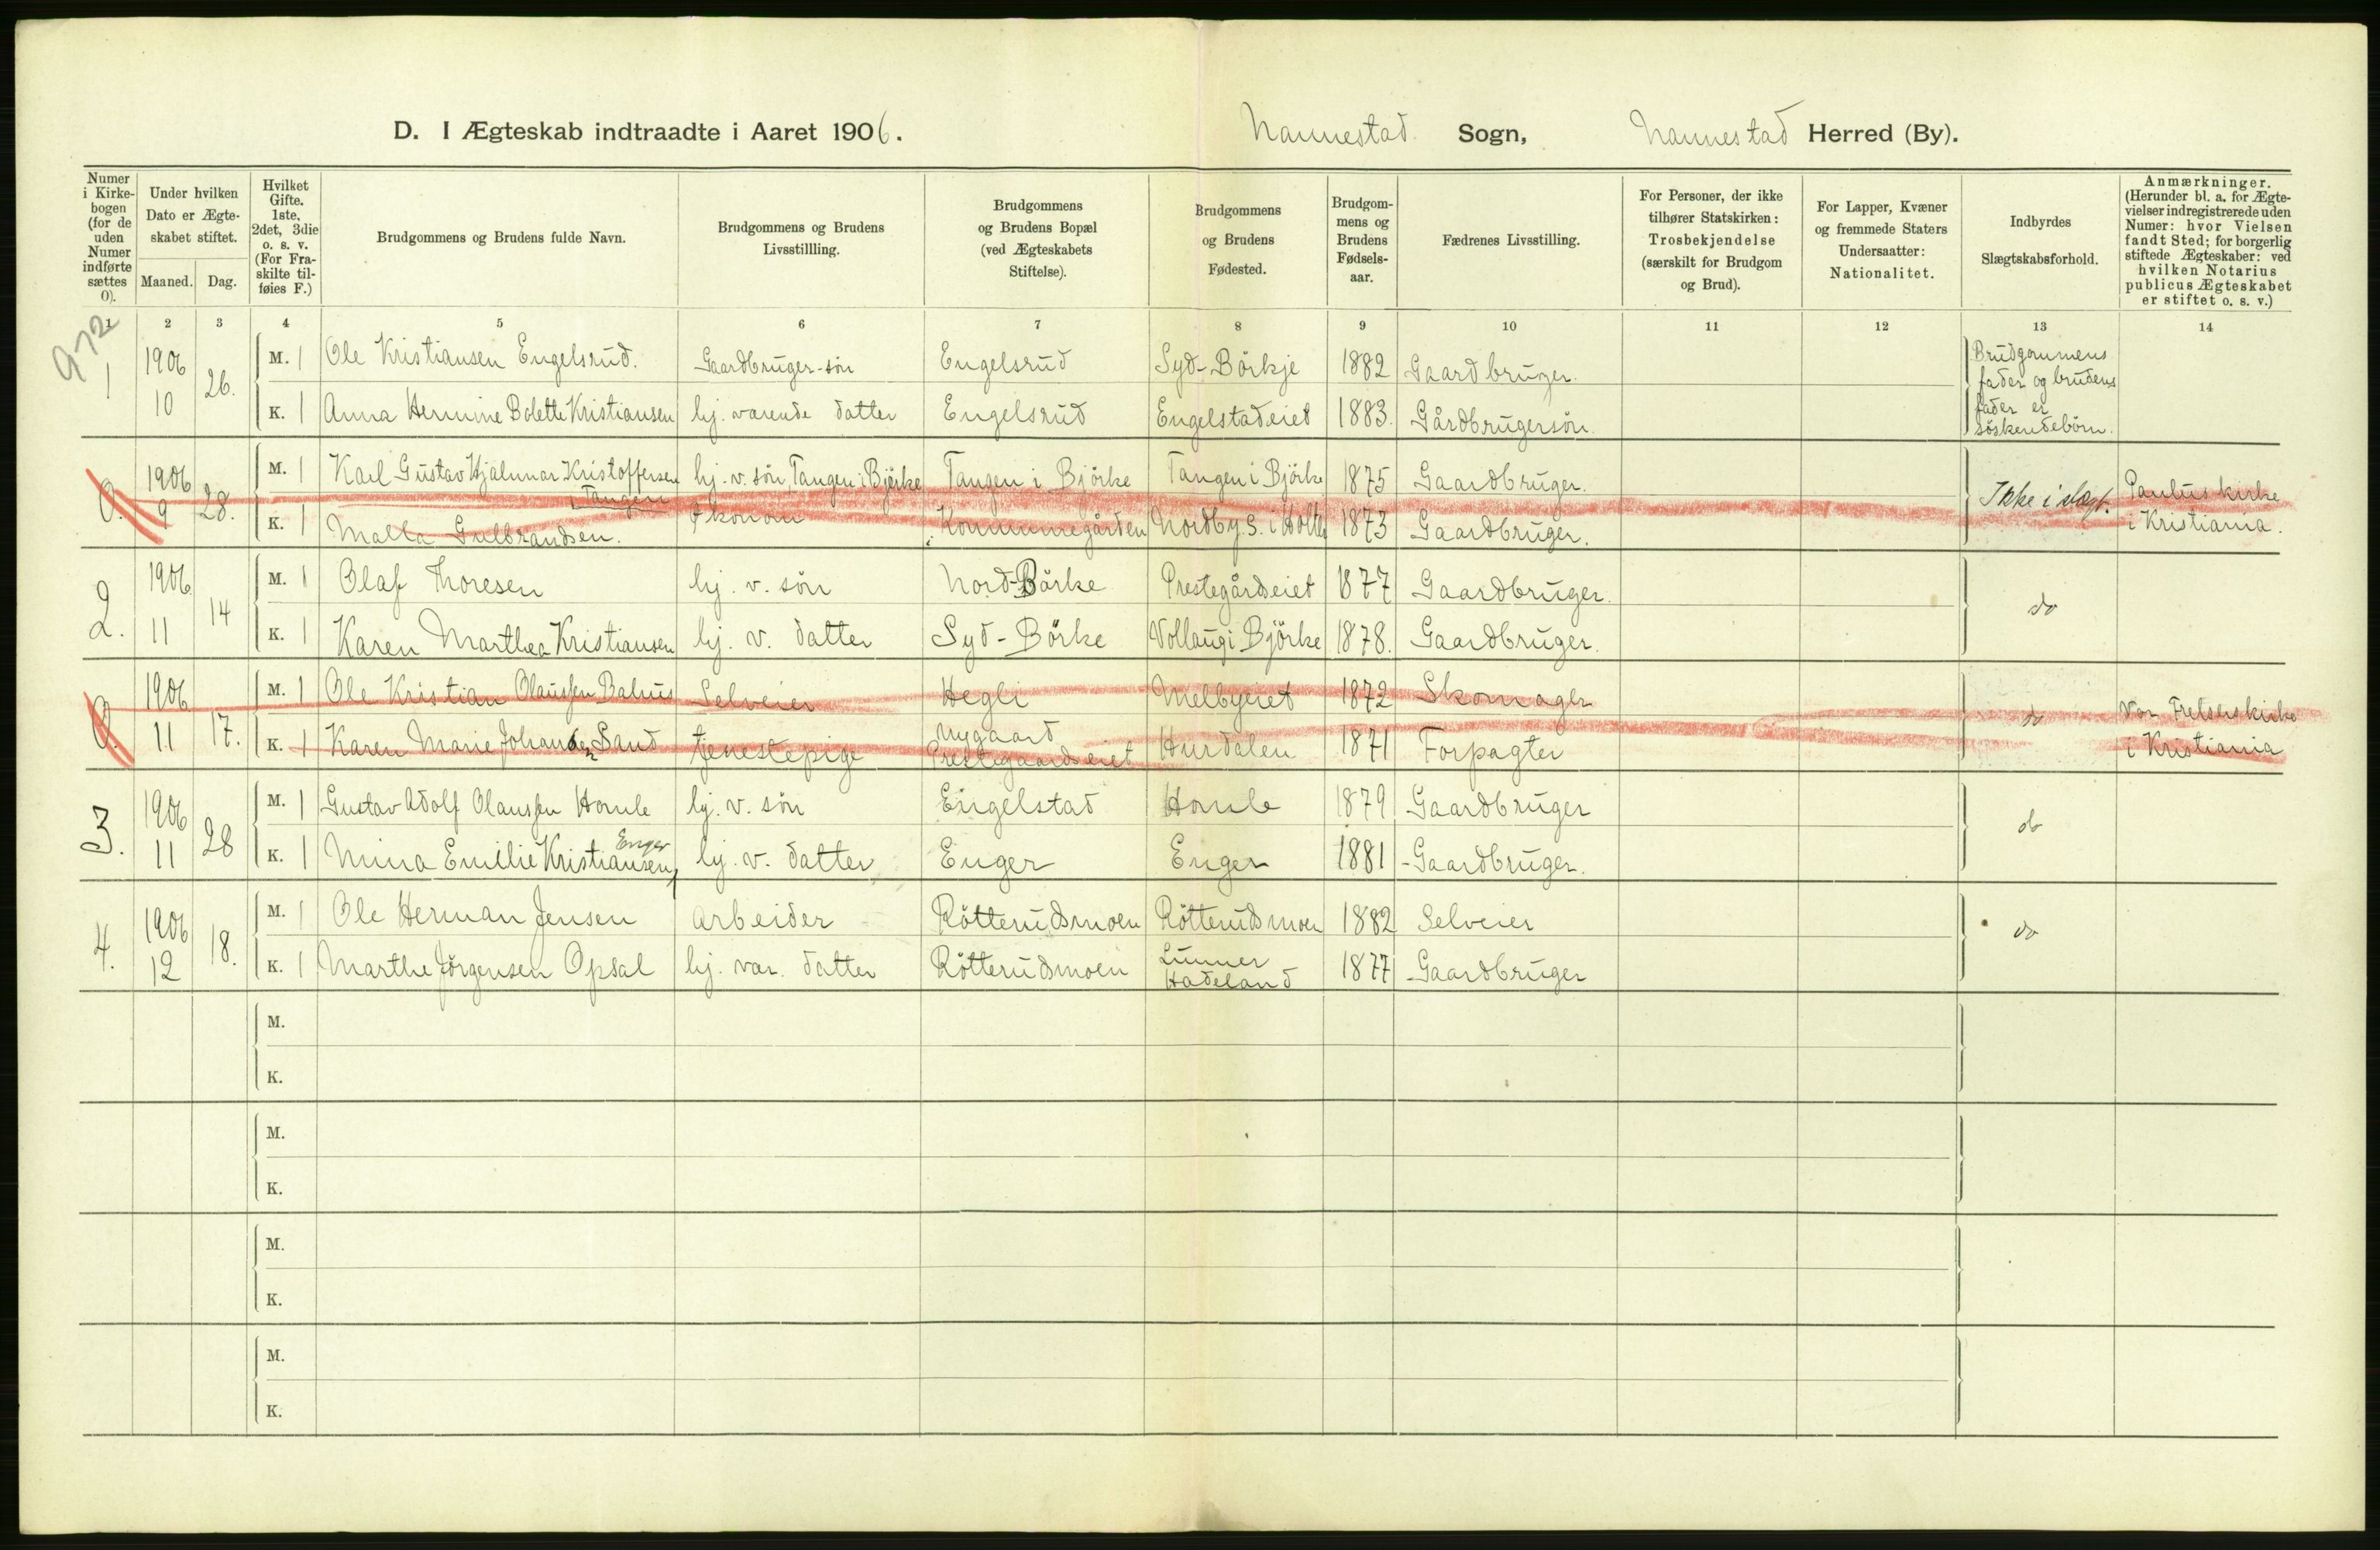 D. I Ægteskab indtraadte i Aaret 1906. Nannestad Sogn, Nannestad Herred (By).
Numer i Kirkebogen (for de uden Numer indførte sættes 0).
Under hvilken Dato er Ægteskabet stiftet.
Maaned. Dag.
Hvilket Gifte. 1ste, 2det, 3die o. s. v. (For Fraskilte tilføies F.)
Brudgommens og Brudens fulde Navn.
Brudgommens og Brudens Livsstillling.
Brudgommens og Brudens Bopæl (ved Ægteskabets Stiftelse).
Brudgommens og Brudens Fødested.
Brudgommens og Brudens Fødselsaar.
Fædrenes Livsstilling.
For Personer, der ikke tilhører Statskirken: Trosbekjendelse (særskilt for Brudgom og Brud).
For Lapper, Kvæner og fremmede Staters Undersaatter: Nationalitet.
Indbyrdes Slægtskabsforhold.
Anmærkninger. (Herunder bl. a. for Ægtevielser indregistrerede uden Numer: hvor Vielsen fandt Sted; for borgerlig stiftede Ægteskaber: ved hvilken Notarius publicus Ægteskabet er stiftet o. s. v.)
1 2 3 4 5 6 7 8 9 10 11 12 13 14
972
1 1906 10 26. M. 1 Ole Kristiansen Engelsrud. Gaardbruger-sön Engelsrud Syd-Börkje 1882 Gaardbruger. Brudgommens fader og brudens fader er söskendebörn.
K. 1 Anna Hermine Bolette Kristiansen hj. varende datter Engelsrud Engelstadeiet 1883. Gårdbrugersön.
0. 1906 9 28. M. 1 Karl Gustav Hjalmar Kristoffersen Tangen hj. v. sön, Tangen i Bjørke Tangen i Björke Tangen i Björke 1875 Gaardbruger. Ikke i slægt. Paulus kirke i Kristiania.
K. 1 Malla Gulbrandsen. Økonom Kommunegården Nordby S. i Holter 1873 Gaardbruger.
2. 1906 11 14 M. 1 Olaf Thoresen hj. v. sön Nord-Börke Prestegårdseiet 1877 Gaardbruger. do
K. 1 Karen Marthea Kristiansen hj. v. datter Syd-Börke Vollaug i Björke 1878. Gaardbruger.
0. 1906 11 17. M. 1 Ole Kristian Olaussen Bahus Selveier Hegli Melbyeiet 1872 Skomager do Vor Frelsers kirke i Kristiania
K. 1 Karen Marie Johansen Sand tjenestepige Nygaard Prestegaardseiet Hurdalen 1871 Forpagter
3. 1906 11 28 M. 1 Gustav Adolf Olaussen Homle hj. v. sön Engelstad Homle 1879 Gaardbruger do
K. 1 Mina Emilie Kristiansen, Enger hj. v. datter Enger Enger 1881 Gaardbruger.
4. 1906 12 18. M. 1 Ole Herman Jensen arbeider Rötterudsmoen Rötterudsmoen 1882 Selveier do
K. 1 Marthe Jörgensen Opsal hj. var. datter Rötterudsmoen Lunner Hadeland 1877 Gaardbruger
M.
K.
M.
K.
M.
K.
M.
K.